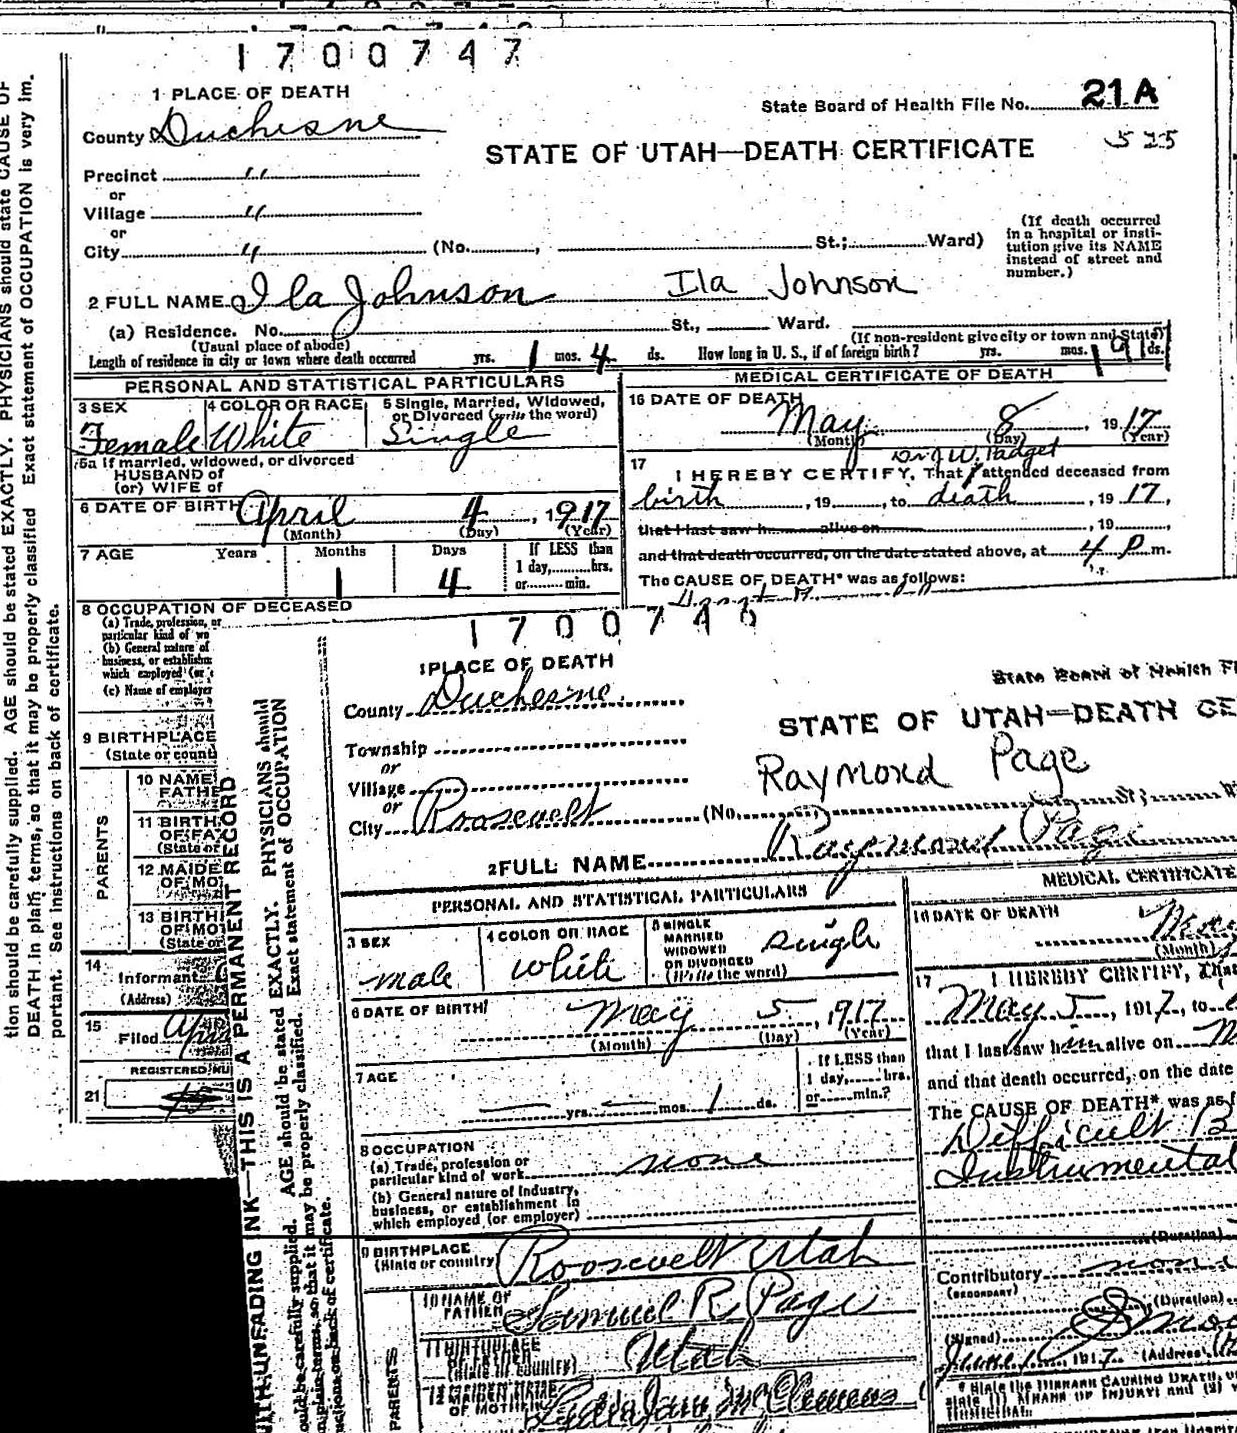 1700747
1 PLACE OF DEATH
State Board of Health File No. 21A
County Duchesne
525
STATE OF UTAH—DEATH CERTIFICATE
Precinct "
or
Village "
or
City " (No. , St.; Ward)
(If death occurred
in a hospital or insti-
tution give its NAME
instead of street and
number.)
2 FULL NAME Ila Johnson Ila Johnson
(a) Residence. No. St., Ward.
(Usual place of abode)
(If non-resident give city or town and State)
Length of residence in city or town where death occurred yrs. 1 mos. 4 ds. How long in U. S., if of foreign birth? yrs. mos. ds.
PERSONAL AND STATISTICAL PARTICULARS
3 SEX
Female
4 COLOR OR RACE
White
5 Single, Married, Widowed,
or Divorced (write the word)
Single
5a If married, widowed, or divorced
HUSBAND of
(or) WIFE of
6 DATE OF BIRTH April 4, 1917
(Month) (Day) (Year)
7 AGE Years Months Days If LESS than
1 day, hrs.
or min.
1 4
8 OCCUPATION OF DECEASED
(a) Trade, profession, or
particular kind of wo
(b) General nature of
business, or establishm
which employed (or
(c) Name of employer
9 BIRTHPLACE
(State or count
PARENTS
10 NAME
FATHE
11 BIRTH
OF FA
(State or
12 MAIDE
OF MO
13 BIRTHI
OF MO
(State or
14
Informant
(Address)
15
Filed
REGISTERED NU
21
MEDICAL CERTIFICATE OF DEATH
16 DATE OF DEATH
May 8, 1917
(Month) (Day) (Year)
Dr J. W. Padget
17
I HEREBY CERTIFY, That attended deceased from
birth, 19 , to death, 1917,
that I last saw h alive on , 19 ,
and that death occurred, on the date stated above, at 4 P m.
The CAUSE OF DEATH* was as follows:
tion should be carefully supplied. AGE should be stated EXACTLY. PHYSICIANS should state CAUSE OF
DEATH in plain terms, so that it may be properly classified. Exact statement of OCCUPATION is very im-
portant. See instructions on back of certificate.
170074
1 PLACE OF DEATH
State Board of Health F
County Duchesne
STATE OF UTAH—DEATH CE
Township
or
Village
Raymond Page
or
City Roosevelt (No. , St;
2 FULL NAME Raymond Page
PERSONAL AND STATISTICAL PARTICULARS
3 SEX
male
4 COLOR OR RACE
white
5 SINGLE
MARRIED
WIDOWED
OR DIVORCED
(Write the word)
Single
6 DATE OF BIRTH
May 5, 1917
(Month) (Day) (Year)
7 AGE
yrs. mos. 1 ds.
If LESS than
1 day, hrs.
or min.?
8 OCCUPATION
(a) Trade, profession or
particular kind of work none
(b) General nature of industry,
business, or establishment in
which employed (or employer)
9 BIRTHPLACE
(State or country Roosevelt Utah
PARENTS
10 NAME OF
FATHER Samuel R Page
11 BIRTHPLACE
OF FATHER
(State or country) Utah
12 MAIDEN NAME
OF MOTHER
MEDICAL CERTIFICATE
16 DATE OF DEATH
(Month)
17 I HEREBY CERTIFY, That
May 5, 1917, to
that I last saw him alive on
and that death occurred, on the date
The CAUSE OF DEATH* was as f
Difficult B
Instrumental
(Duration)
Contributory
(SECONDARY)
(Duration)
(Signed)
June 1 1917 (Address)
* State the DISEASE CAUSING DEATH,
state (1) MEANS OF INJURY; and (2) w
WITH UNFADING INK—THIS IS A PERMANENT RECORD
ould be carefully supplied. AGE should be stated EXACTLY. PHYSICIANS should
plain terms, so that it may be properly classified. Exact statement of OCCUPATION
uctions on back of certificate.